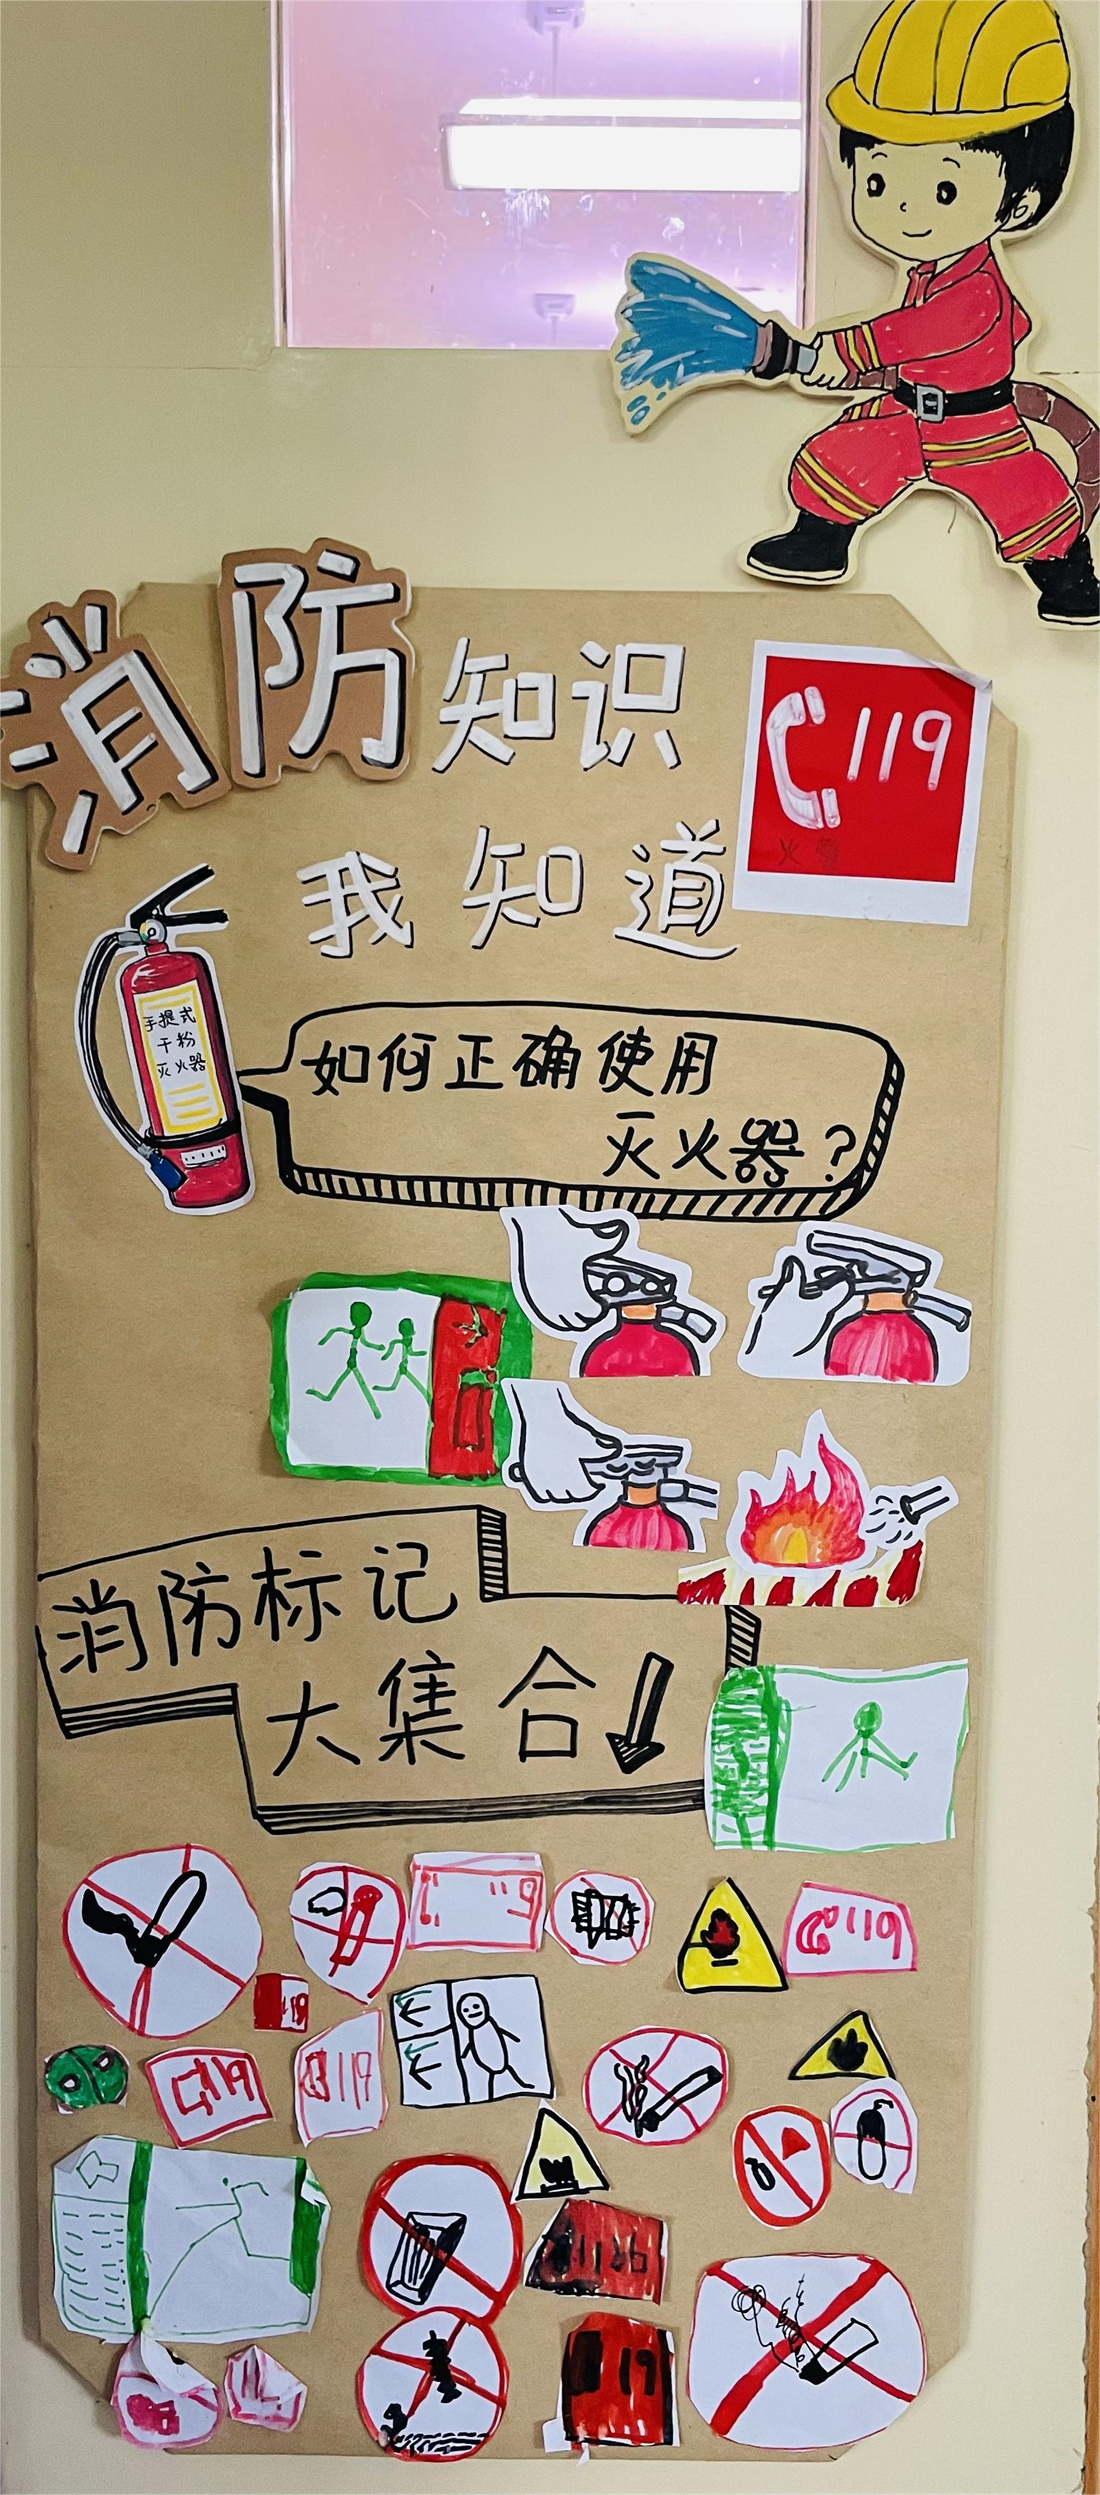 消防知识
119
我知道
手提式
干粉
灭火器
如何正确使用
灭火器？
消防标记
大集合
119
119
119
119
119
119
119